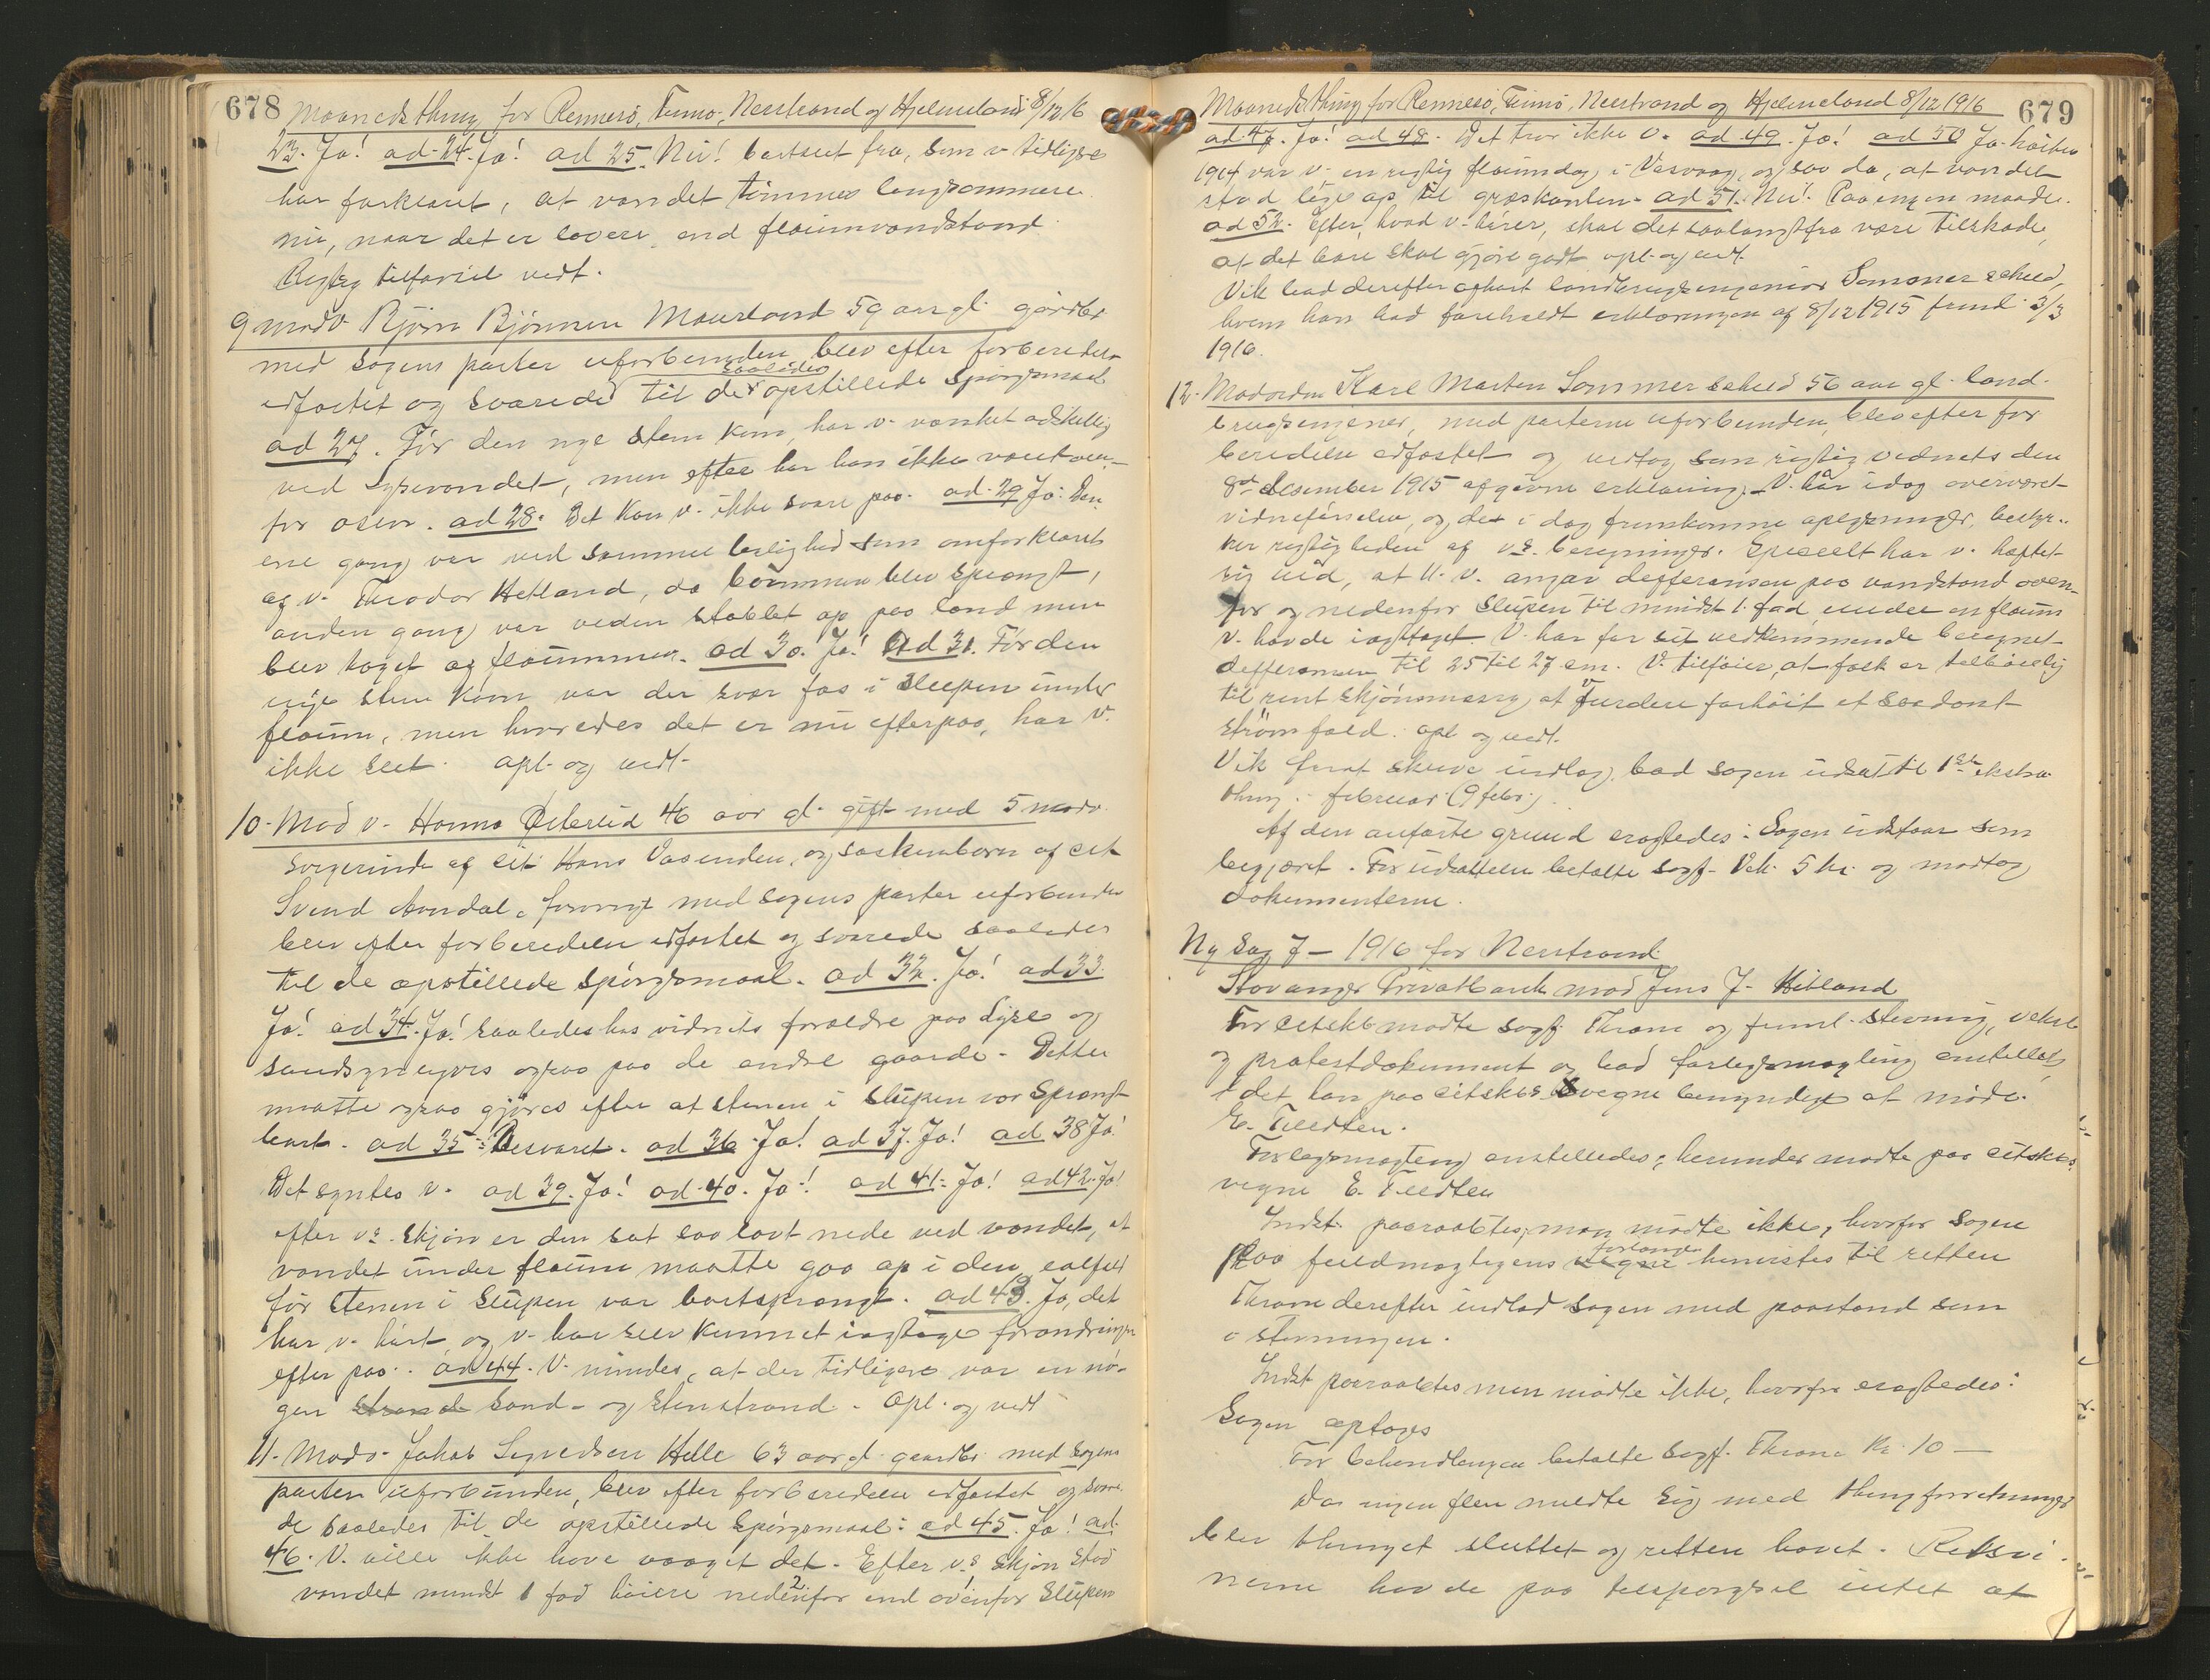 678 Maanedsthing for Rennesö, Finnö, Nerstrand og Hjelmeland 8/12 16
23. Ja! ad 24. Ja! ad 25. Nei! bortseet fra, som v. tidligere
har forklaret, at vandet tömmes langsommere
nu, naar det er lavere end flaumvandstand.
Rigtig tilförsel vedt.
9 modv. Björn Björnsen Maurland 59 aar gl. gårdbr.
med sagens parter uforbunden blev efter forberedelse
edfæstet og svarede saaledes til de opstillede spörgsmaal
ad 27. För den nye sten kom, har v. vanket adskillig
ved Lysevandet, men efter har han ikke været oven-
for osen. ad 28. Det kan v. ikke svare paa. ad 29 Ja. Den
ene gang var ved samme leilighed som omforklaret
af v. Theodor Hetland, da bommen blev sprængt,
anden gang var veden stablet op paa land men
blev taget af flaummen. ad 30. Ja! ad 31. För den
nye sten kom var der svær fos i Sleipen under
flaum, men hvoredes det er nu efterpaa, har v.
ikke seet. opl. og vedt.
10. Mod v. Hanna Österlid 46 aar gl. gift med 5 modv.
svigerinde af cit. Hans Vasenden, og søskenbarn af cit
Svend Aandal, forövrigt med sagens parter uforbunden
blev efter forberedelse edfæstet og svarede saaledes
til de opstillede spörgsmaal. ad 32. Ja! ad 33.
Ja! ad 34. Ja! saaledes hos vidnets forældre paa Lyse og
sandsynligvis ogsaa paa de andre gaarde. Dette
maatte ogsaa gjöres efter at stenen i Sleipen var sprængt
bort. ad 35: Besvaret. ad 36 Ja! ad 37. Ja! ad 38 Ja!
Det syntes v. ad 39. Ja! ad 40. Ja! ad 41. Ja! ad 42. Ja!
efter vs. skjön er den sat saa lavt nede ved vandet, at
vandet under flaum maatte gaa op i den, ialfald
för stenen i Sleipen var bortsprængt. ad 43. Ja, det
har v. hört, og v. har selv kunnet iagttage forandringen
efter paa. ad 44. V. mindes, at der tidligere var en nö-
gen strand sand- og stenstrand. Opl. og vedt
11. Modv. Jakob Sigvedsen Helle 63 aar gl. gaardbr. med sagens
parter uforbunden, blev efter forberedelse edfæstet og svare
de saaledes til de opstillede spörgsmaal: ad 45. Ja! ad
46. V. ville ikke have vaaget det. Efter vs. skjön stod
vandet mindst 1 fod höiere nedenfor end ovenfor Sleipen
Maanedsthing for Rennesö, Finnö, Nerstrand og Hjelmeland 8/12 1916 679
ad 47. Ja! ad 48. Det tror ikke v. ad 49. Ja! ad 50 Ja. hösten
1914 var v. en rigtig flaumdag i Vasvaag, og saa da, at vandet
stod lige op til græskanten. ad 51. Nei! Paa ingen maade.
ad 52. Efter, hvad v. hörer, skal det saalangt fra være til skade,
at det bare skal gjöre godt opl. og vedt.
Vik bad derefter afhört landbrugsingeniör Sommerscheld,
hvem han bad foreholdt erklæringen af 8/12 1915 freml. 3/3
1916.
12. Modvidne Karl Morten Sommerscheld 56 aar gl. land-
brugsingeniör, med parterne uforbunden, blev efter for
beredelse edfæstet og vedtog som rigtig vidnets den
8de desember 1915 afgivne erklæring. V. har idag overværet
vidneförselen, og det i dag fremkomne oplysninger, bestyr-
ker rigtigheden af vs. beregninger. Specielt har v. hæftet
sig ved, at 11. v. angav defferensen paa vandstand oven-
for og nedenfor Sleipen til mindst 1. fod, under en flaum
v. havde iagttaget. V. har for sit vedkommende beregnet
defferensen til 25 til 27 cm. V. tilföier, at folk er tilböielig
til rent skjönsmæssig at vurdere forhöit et saadant
strömfald. opl. og vedt.
Vik for at skrive indlæg bad sagen udsat til 1ste ekstra
thing i februar (9 febr.).
Af den anförte grund eragtedes: Sagen udstaar som
begjæret. For udsættelsen betalte sagf. Vik 5 kr. og modtog
dokumenterne.
Ny sag 7 – 1916 for Nerstrand
Stavanger Privatbank mod Jens J. Hetland
For citskb mödte sagf. Thrane og freml. stevning, veksel
og protestdokument og bad forligsmægling anstillet,
i det han paa citskbs vegne bemyndiget at möde
E. Tvedten.
Forligsmægling anstilledes; herunder mödte paa citskbs
vegne E. Tvedten
Indst. paaraabtes, men mödte ikke, hvorfor sagen
paa fuldmægtigens vegne forlangende henvistes til retten
Thrane derefter indlod sagen med paastand som
i stevningen.
Indst paaraabtes men mödte ikke, hvorfor eragtedes:
Sagen optages
For behandlingen betalte sagf. Thrane kr. 10 –
Da ingen flere meldte sig med thingforretninger
blev thinget sluttet og retten hævet. Retsvi-
nerne havde paa tilspörgsel intet at